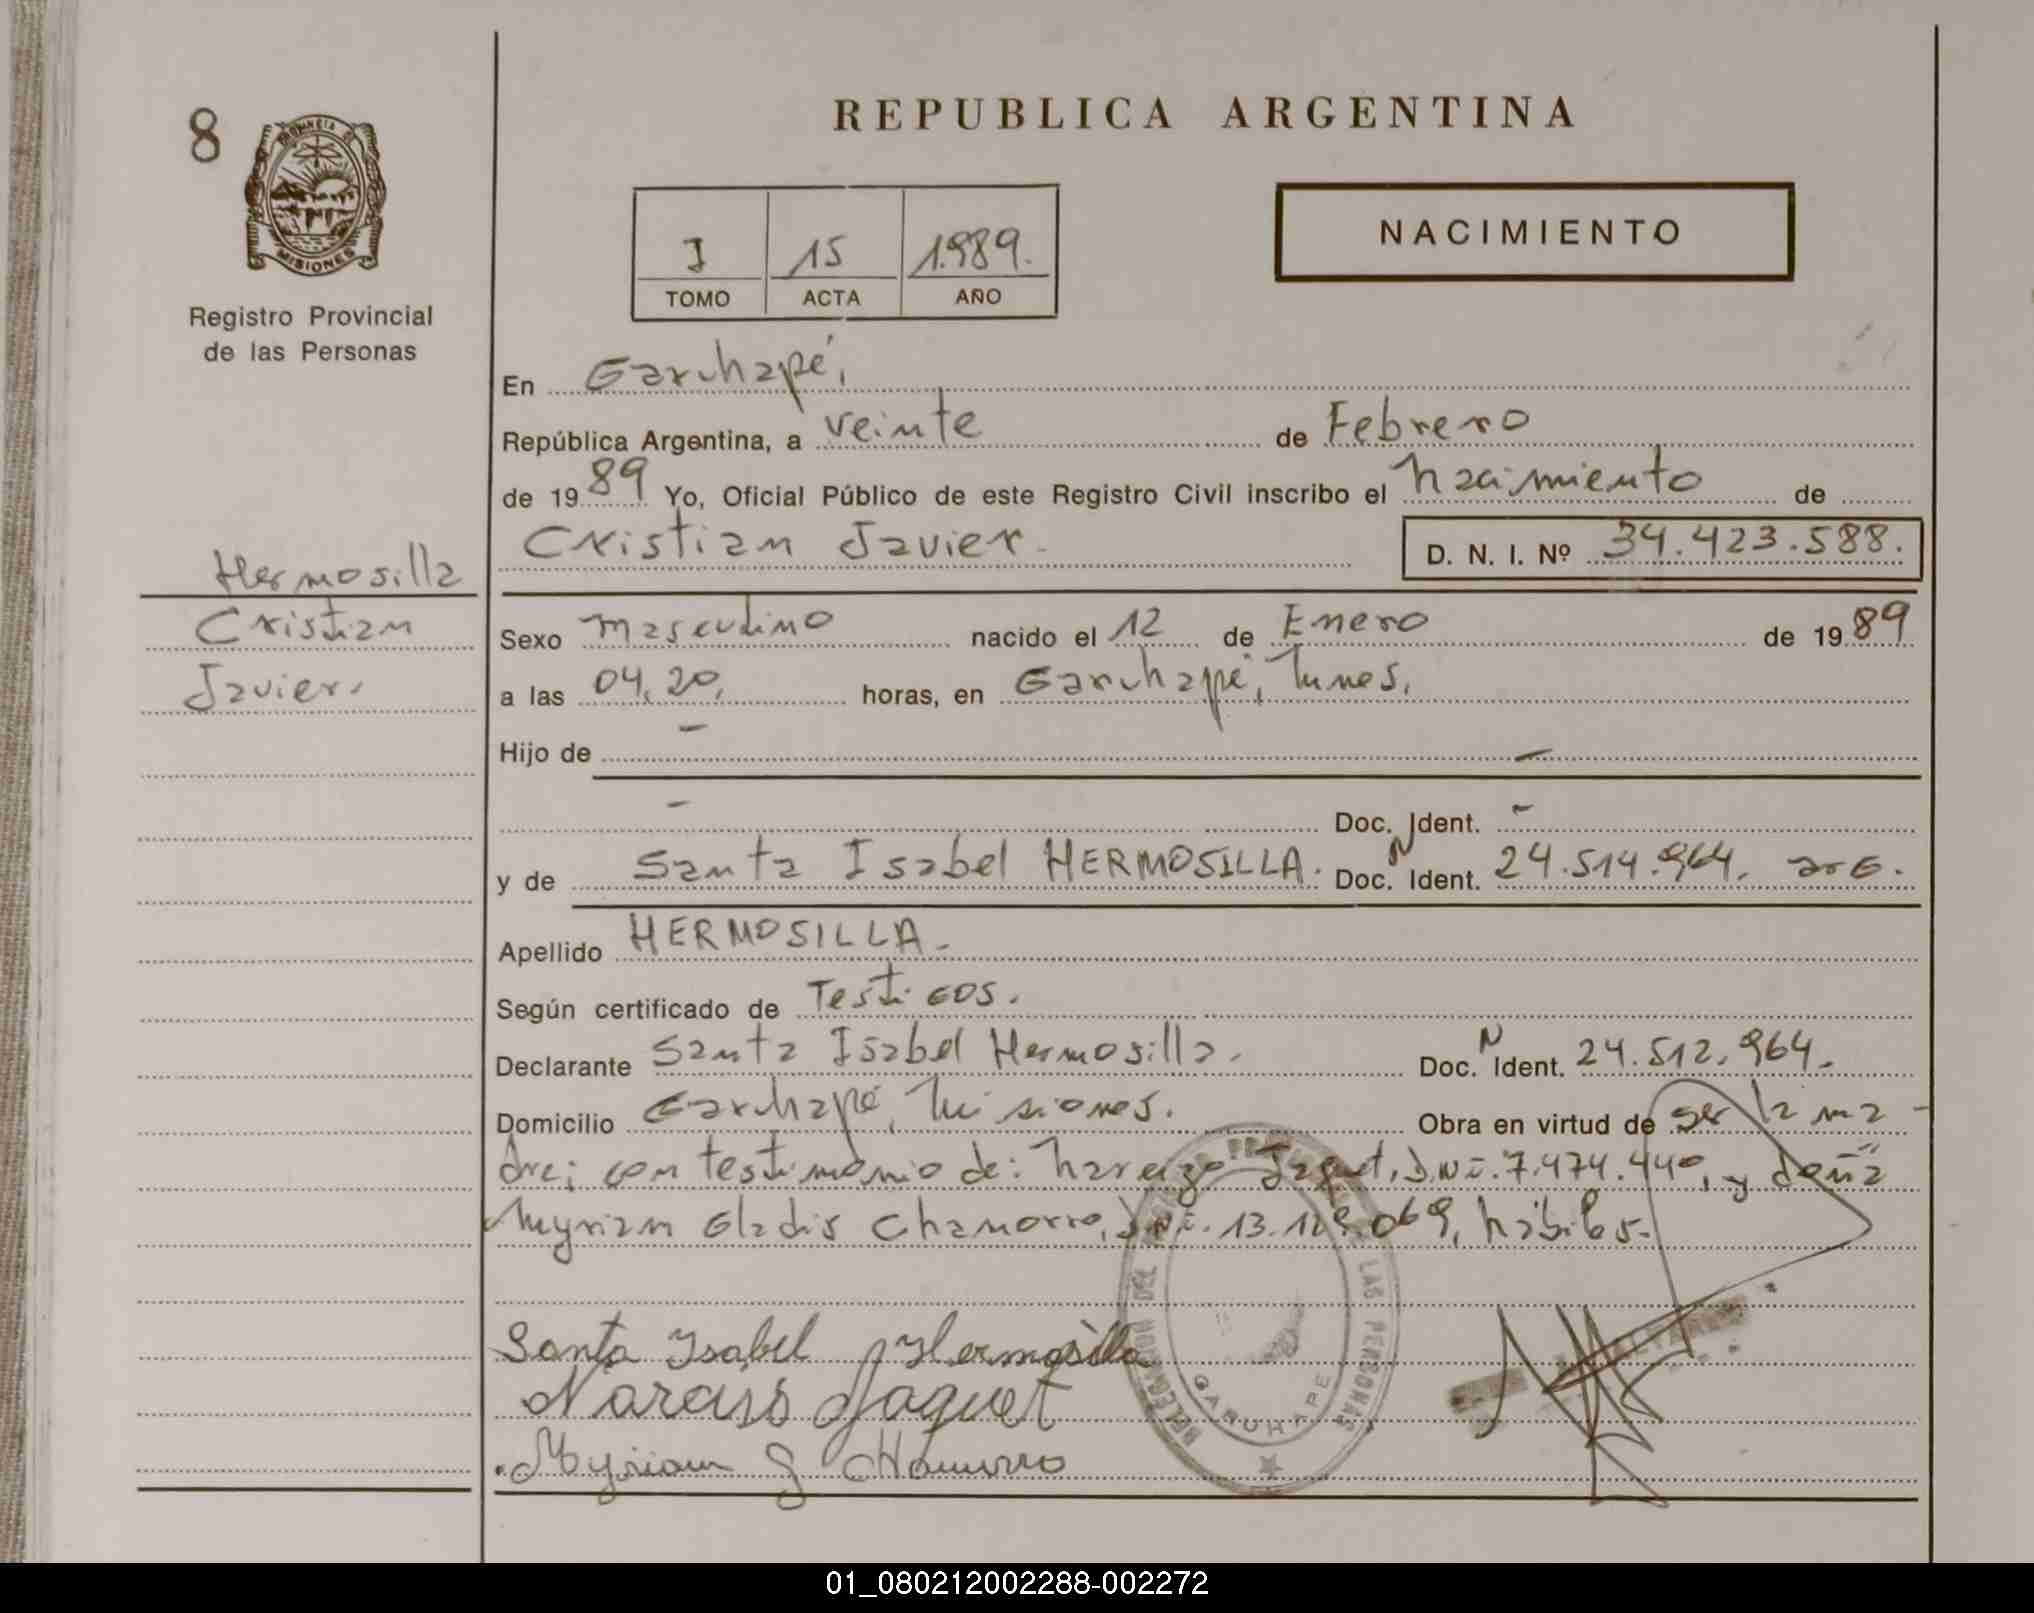 8
PROVINCIA DE
MISIONES
Registro Provincial
de las Personas
REPUBLICA ARGENTINA
NACIMIENTO
I 15 1.989.
TOMO ACTA AÑO
En Garuhapé,
República Argentina, a veinte de Febrero
de 1989 Yo, Oficial Público de este Registro Civil inscribo el nacimiento de
Cristian Javier.
D. N. I. Nº 34.423.588.
Hermosilla
Cristian
Javier.
Sexo masculino nacido el 12 de Enero de 1989
a las 04,20, horas, en Garuhapé,
Hijo de - -
- Doc. Ident. -
y de Santa Isabel HERMOSILLA. Doc. N Ident. 24.514.964. arg.
Apellido HERMOSILLA.
Según certificado de Testigos.
Declarante Santa Isabel Hermosilla. Doc. N Ident. 24.512.964.
Domicilio Garuhapé, Misiones. Obra en virtud de ser la ma-
dre; con testimonio de: Narcizo Jaquet, D.N.I. 7.474.440, y doña
Myrian Gladis Chamorro, D.N.I. 13.129.069, hábiles.
Santa Ysabel Hermosilla
Narciso Jaquet
Myriam G Chamorro
DELEGACION DEL LAS PERSONAS
GARUHAPE
01_080212002288-002272